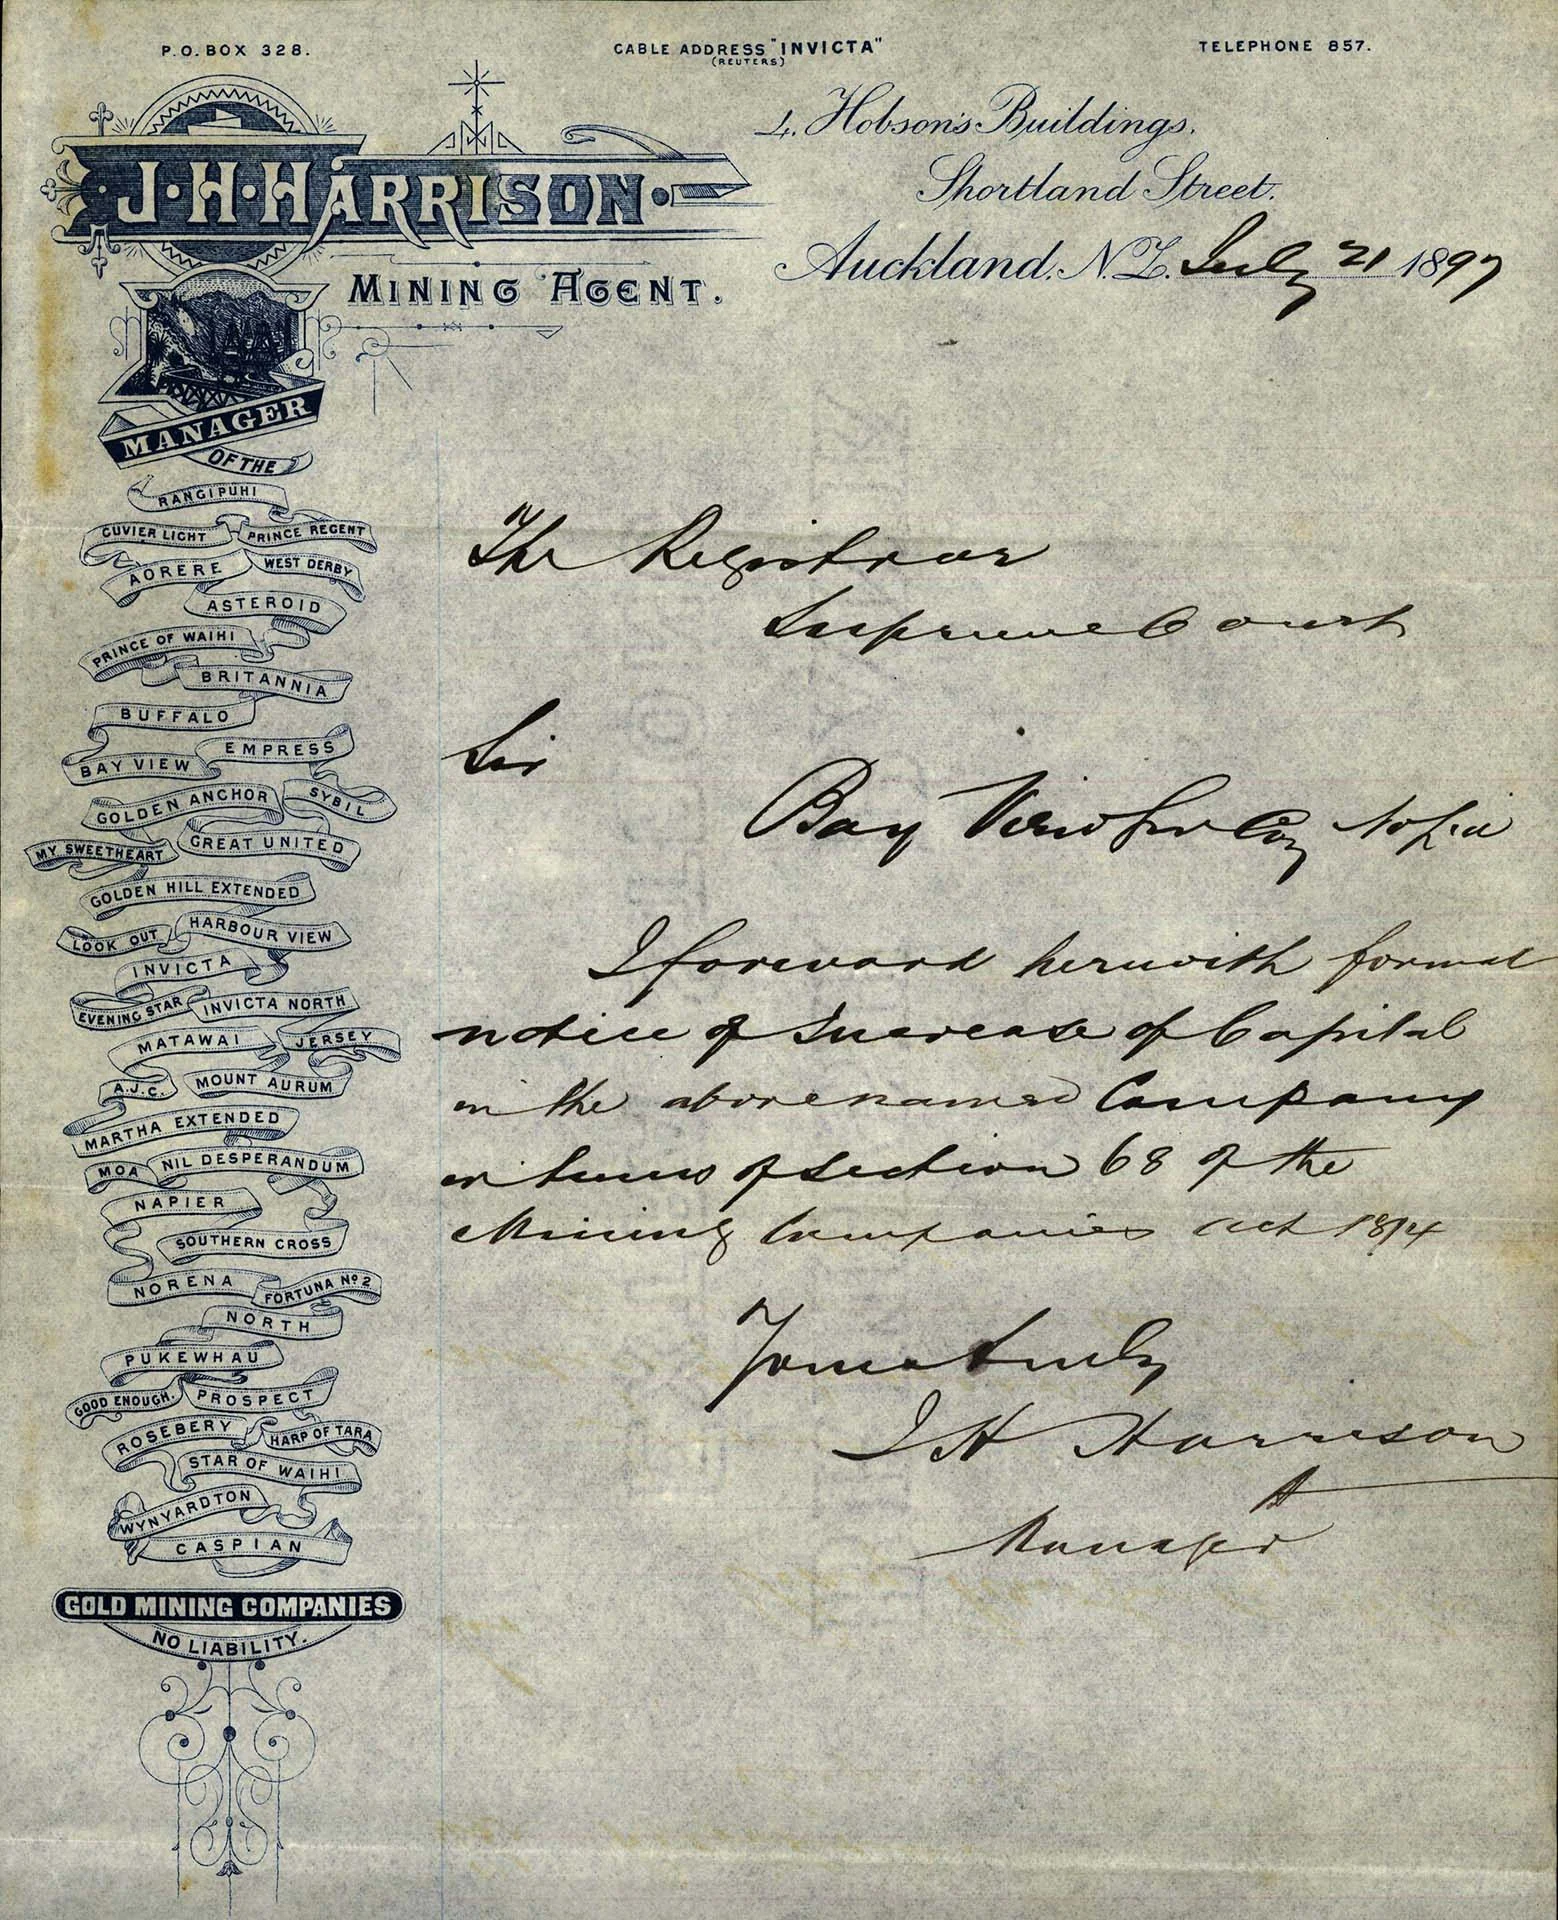 P.O. BOX 328.
CABLE ADDRESS "INVICTA"
(REUTERS)
TELEPHONE 857.
J·H·HARRISON·
MINING AGENT.
4. Hobson's Buildings,
Shortland Street.
Auckland, N.Z. July 21 1897
MANAGER
OF THE
RANGIPUHI
CUVIER LIGHT PRINCE REGENT
AORERE WEST DERBY
ASTEROID
PRINCE OF WAIHI
BRITANNIA
BUFFALO
EMPRESS
BAY VIEW
GOLDEN ANCHOR SYBIL
MY SWEETHEART GREAT UNITED
GOLDEN HILL EXTENDED
LOOK OUT HARBOUR VIEW
INVICTA
EVENING STAR INVICTA NORTH
MATAWAI JERSEY
A.J.C. MOUNT AURUM
MARTHA EXTENDED
MOA NIL DESPERANDUM
NAPIER
SOUTHERN CROSS
NORENA FORTUNA No 2
NORTH
PUKEWHAU
GOOD ENOUGH. PROSPECT
ROSEBERY HARP OF TARA
STAR OF WAIHI
WYNYARDTON
CASPIAN
GOLD MINING COMPANIES
NO LIABILITY.
The Registrar
Supreme Court
Sir
Bay View Coy
I forward herewith formal
notice of Increase of Capital
in the abovenamed Company
in terms of Section 68 of the
Mining Companies Act 1894
Yours truly
J H Harrison
Manager